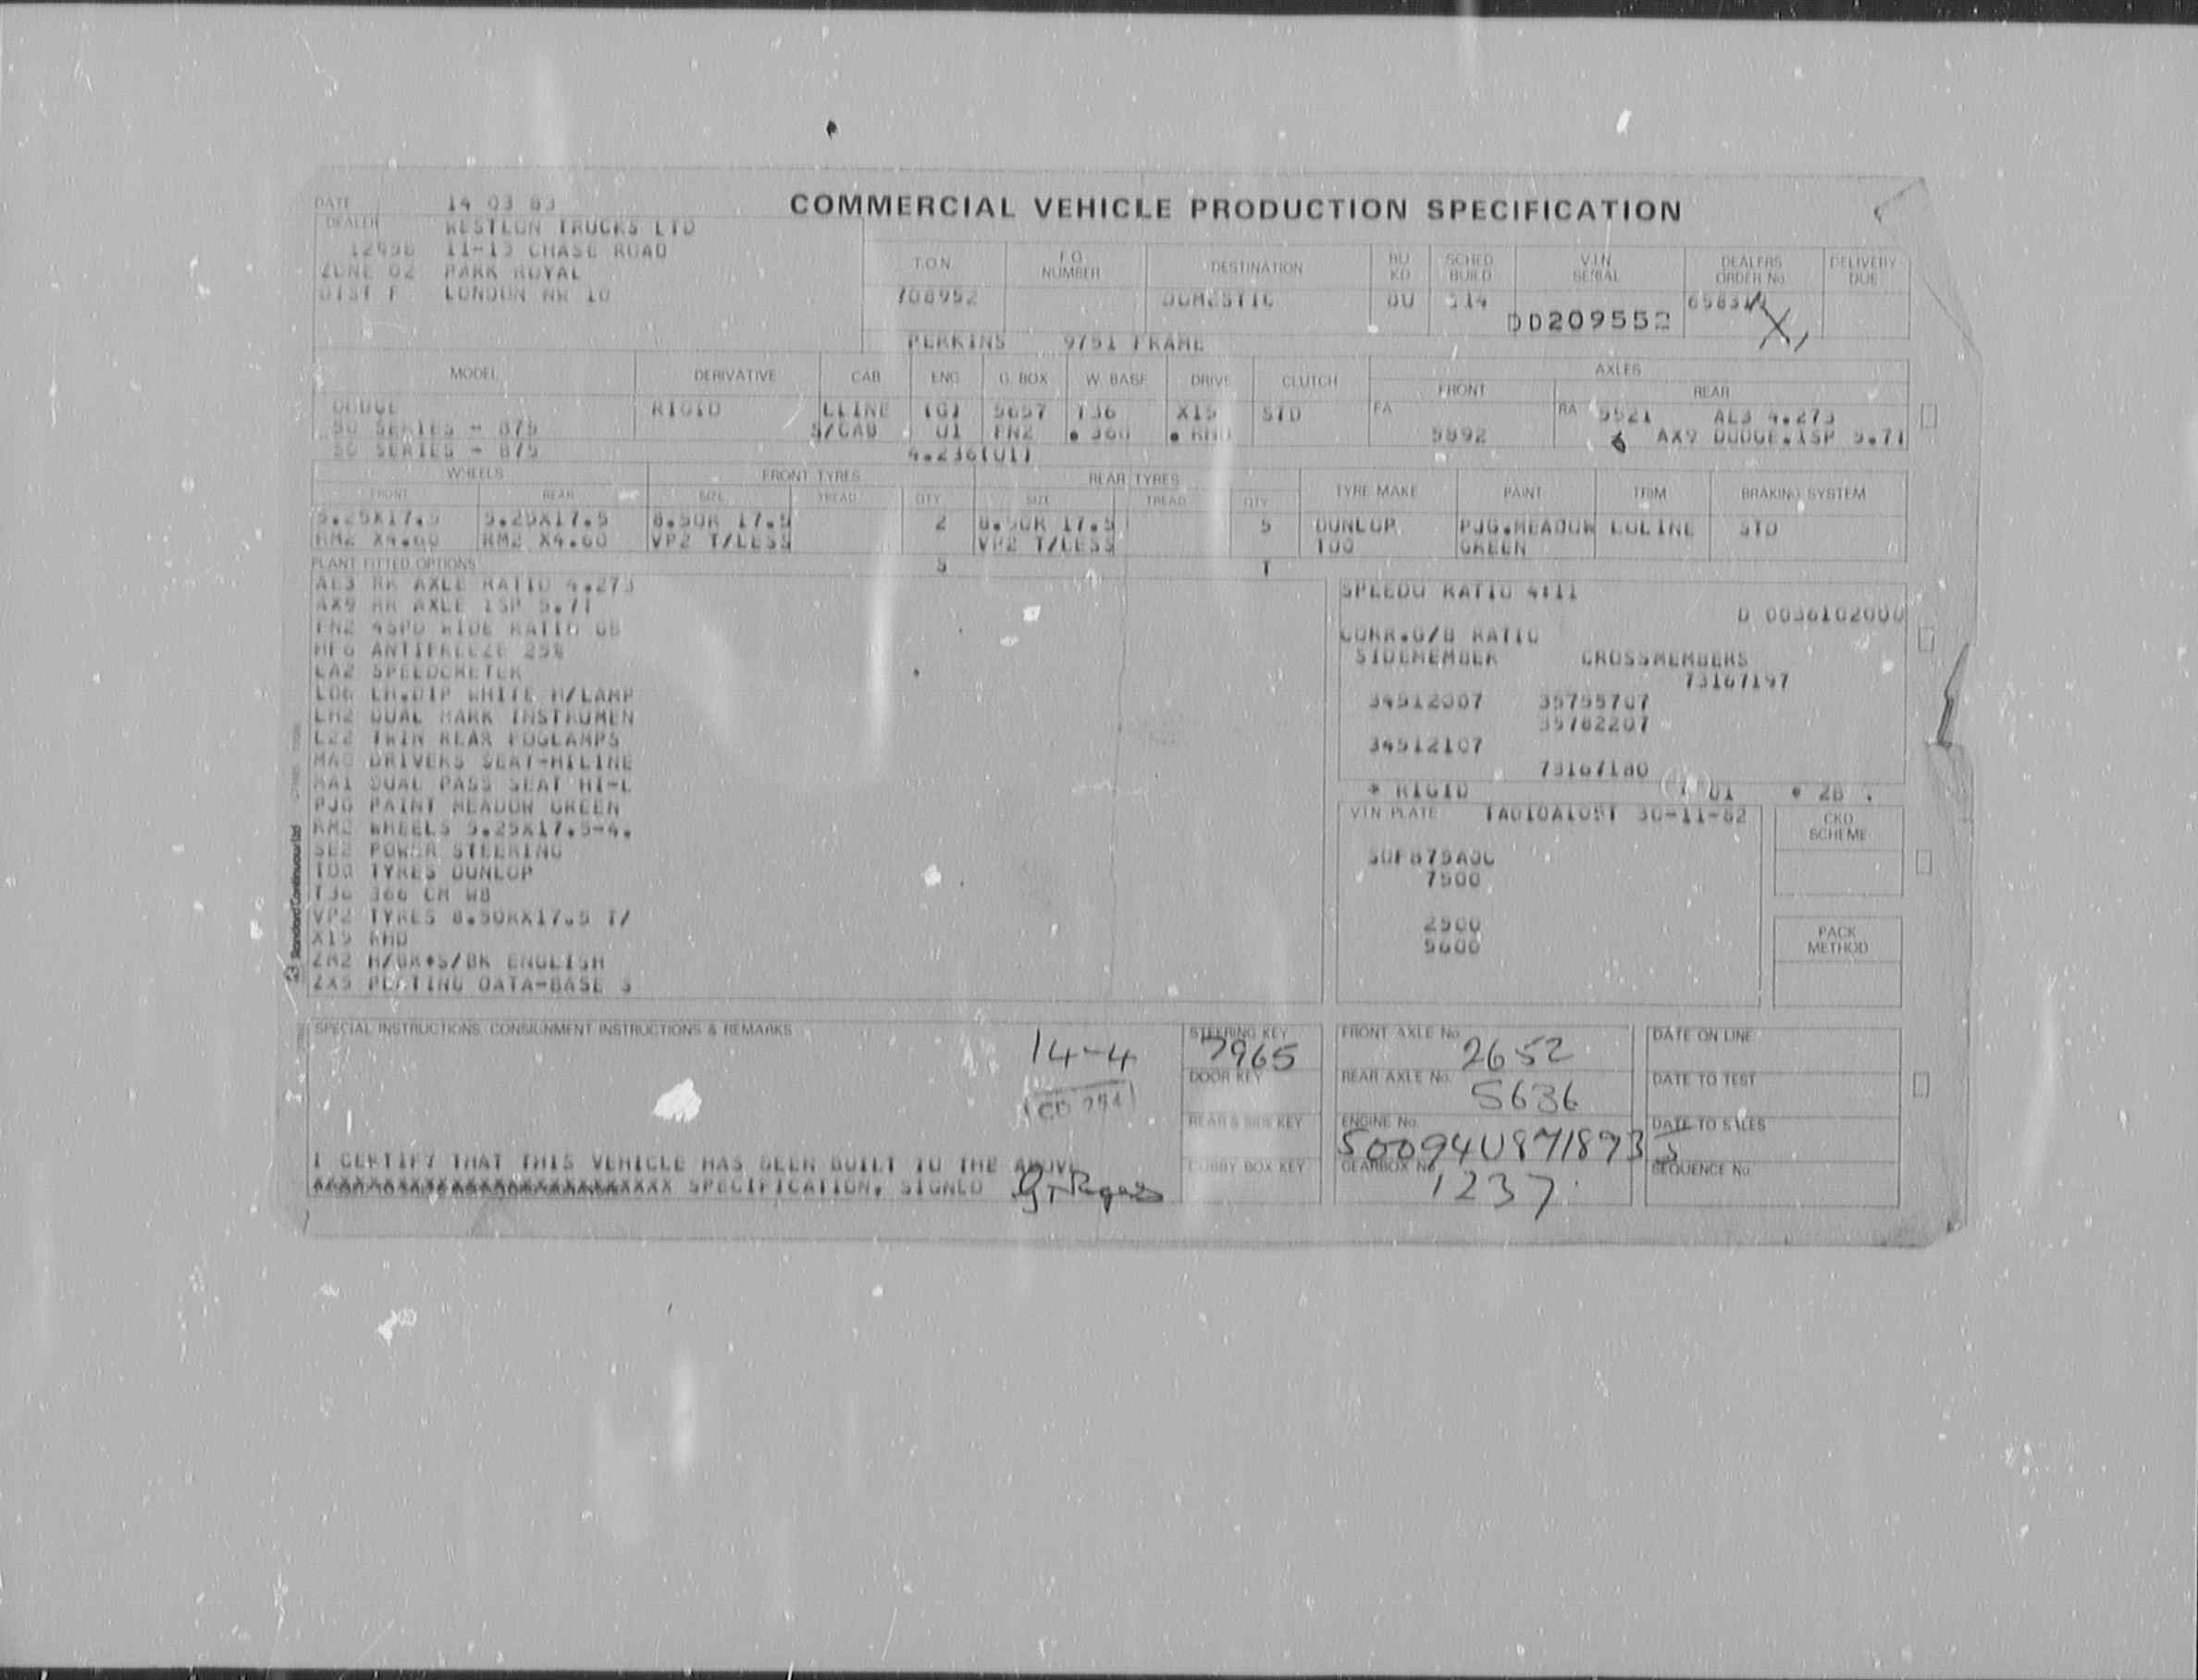 COMMERCIAL VEHICLE PRODUCTION SPECIFICATION
DATE 14 03 83
DEALER WESTLON TRUCKS LTD
12998 11-15 CHASE ROAD
ZONE 02 PARK ROYAL
DIST F LONDON NW 10
T.O.N. F.O. NUMBER DESTINATION BU KD SCHED BUILD V.I.N. SERIAL DEALERS ORDER No. DELIVERY DUE
708952 DOMESTIC BU 114 DD209552
PERKINS 9751 FRAME
MODEL DERIVATIVE CAB ENG G. BOX W. BASE DRIVE CLUTCH AXLES
FRONT REAR
DODGE RIGID LLINE (G) 5657 T36 X15 STD FA RA 5521 AL3 4.273
50 SERIES - 875 S/CAB 01 FN2 . 366 . RHD 5892 AX9 DODGE.1SP 5.71
50 SERIES - 875 4.236(01)
WHEELS FRONT TYRES REAR TYRES TYRE MAKE PAINT TRIM BRAKING SYSTEM
FRONT REAR SIZE TREAD QTY SIZE TREAD QTY
5.25X17.5 5.25X17.5 8.50R 17.5 2 8.50R 17.5 5 DUNLOP PJG.MEADOW LOLINE STD
RM2 X4.60 RM2 X4.60 VP2 T/LESS VP2 T/LESS T00 GREEN
PLANT FITTED OPTIONS S T
AL3 RR AXLE RATIO 4.273
AX9 RR AXLE 1SP 5.71
FN2 4SPD WIDE RATIO GB
HF6 ANTIFREEZE 25%
LA2 SPEEDOMETER
LD6 LH.DIP WHITE H/LAMP
LH2 DUAL MARK INSTRUMEN
LZ2 TWIN REAR FOGLAMPS
MA0 DRIVERS SEAT-HILINE
MA1 DUAL PASS SEAT HI-L
PJG PAINT MEADOW GREEN
RM2 WHEELS 5.25X17.5-4.
SE2 POWER STEERING
T00 TYRES DUNLOP
T36 366 CM WB
VP2 TYRES 8.50RX17.5 T/
X15 RHD
ZH2 H/BK+S/BK ENGLISH
ZX5 PLATING DATA-BASE S
SPEEDO RATIO 4:11
D 0036102000
CORR.G/B RATIO
SIDEMEMBER CROSSMEMBERS
73167197
34512007 35755707
35782207
34512107
73167180
* RIGID 01 * 28 .
VIN PLATE TA010A105T 30-11-82 CKD SCHEME
7500
2500 PACK METHOD
5600
Standard Continuous Ltd
SPECIAL INSTRUCTIONS. CONSIGNMENT INSTRUCTIONS & REMARKS
14-4
STEERING KEY 7965 FRONT AXLE No. 2652 DATE ON LINE
DOOR KEY REAR AXLE No. 5636 DATE TO TEST
REAR & SIDE KEY ENGINE No. 500940871893S DATE TO SALES
CUBBY BOX KEY GEARBOX No. 1237 SEQUENCE No.
I CERTIFY THAT THIS VEHICLE HAS BEEN BUILT TO THE ABOVE
SPECIFICATION, SIGNED